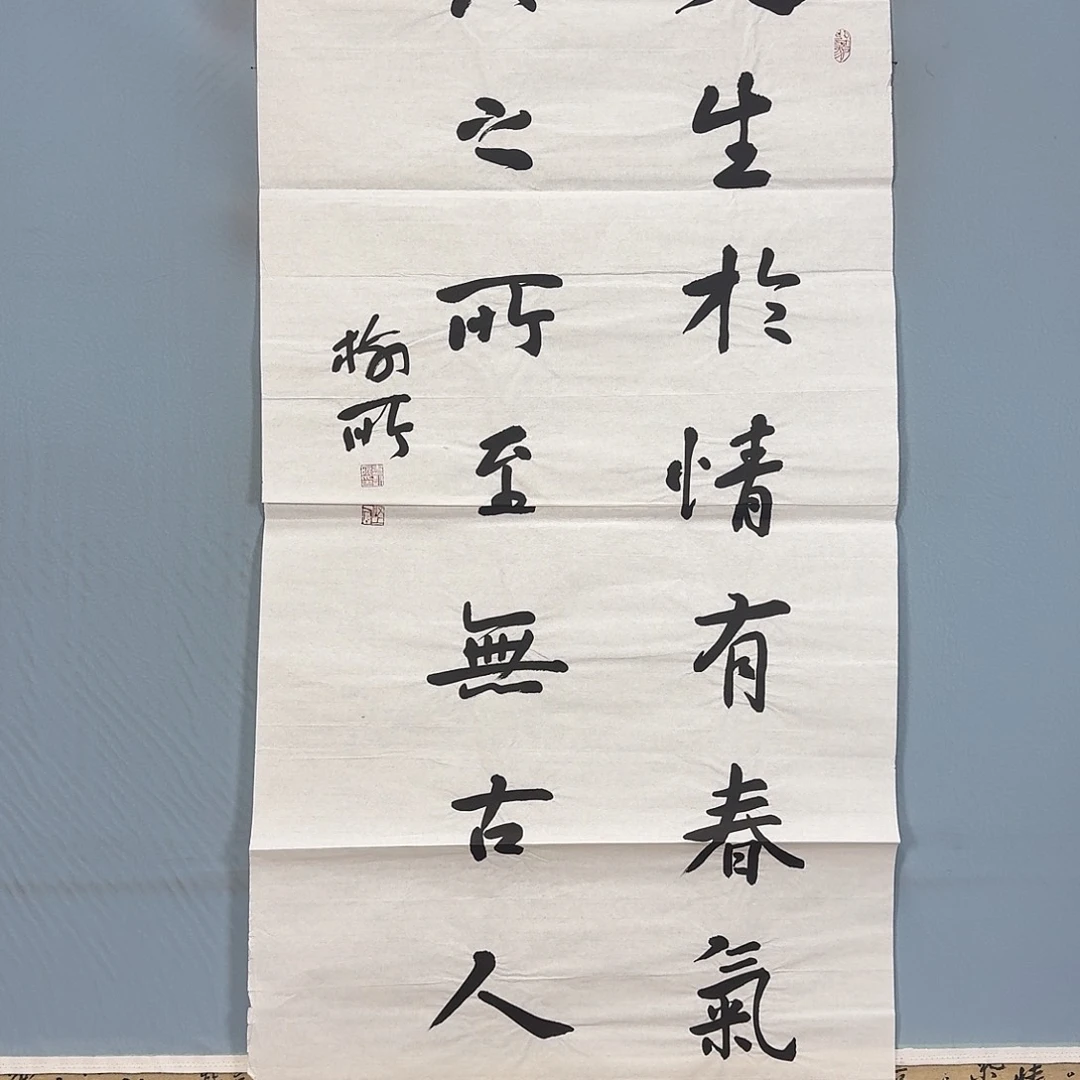 生於情有春氣
之所至無古人
榆所